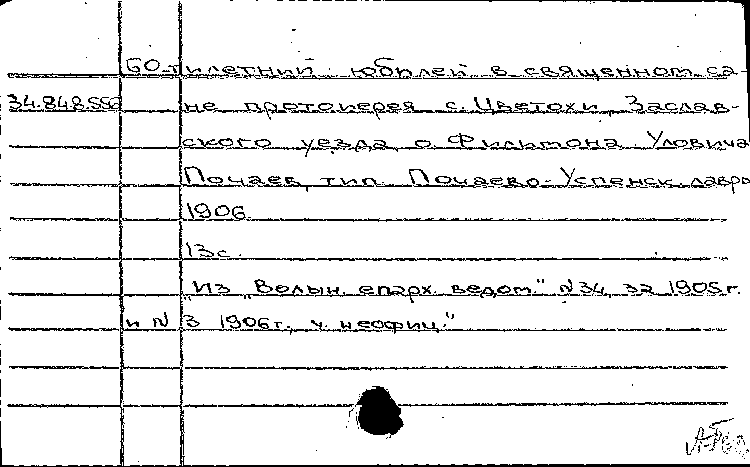 60-тилетний юбилей в священном са-
34.848.556 не протоиерея с. Цветохи, Заслав-
ского уезда о. Фильтона Уловича
Почаев, тип. Почаево-Успенск. лавр
1906.
13с.
"Из "Волын. епарх. ведом." N 34, за 1905 г.
и N 3 1906 г., ч. неофиц."